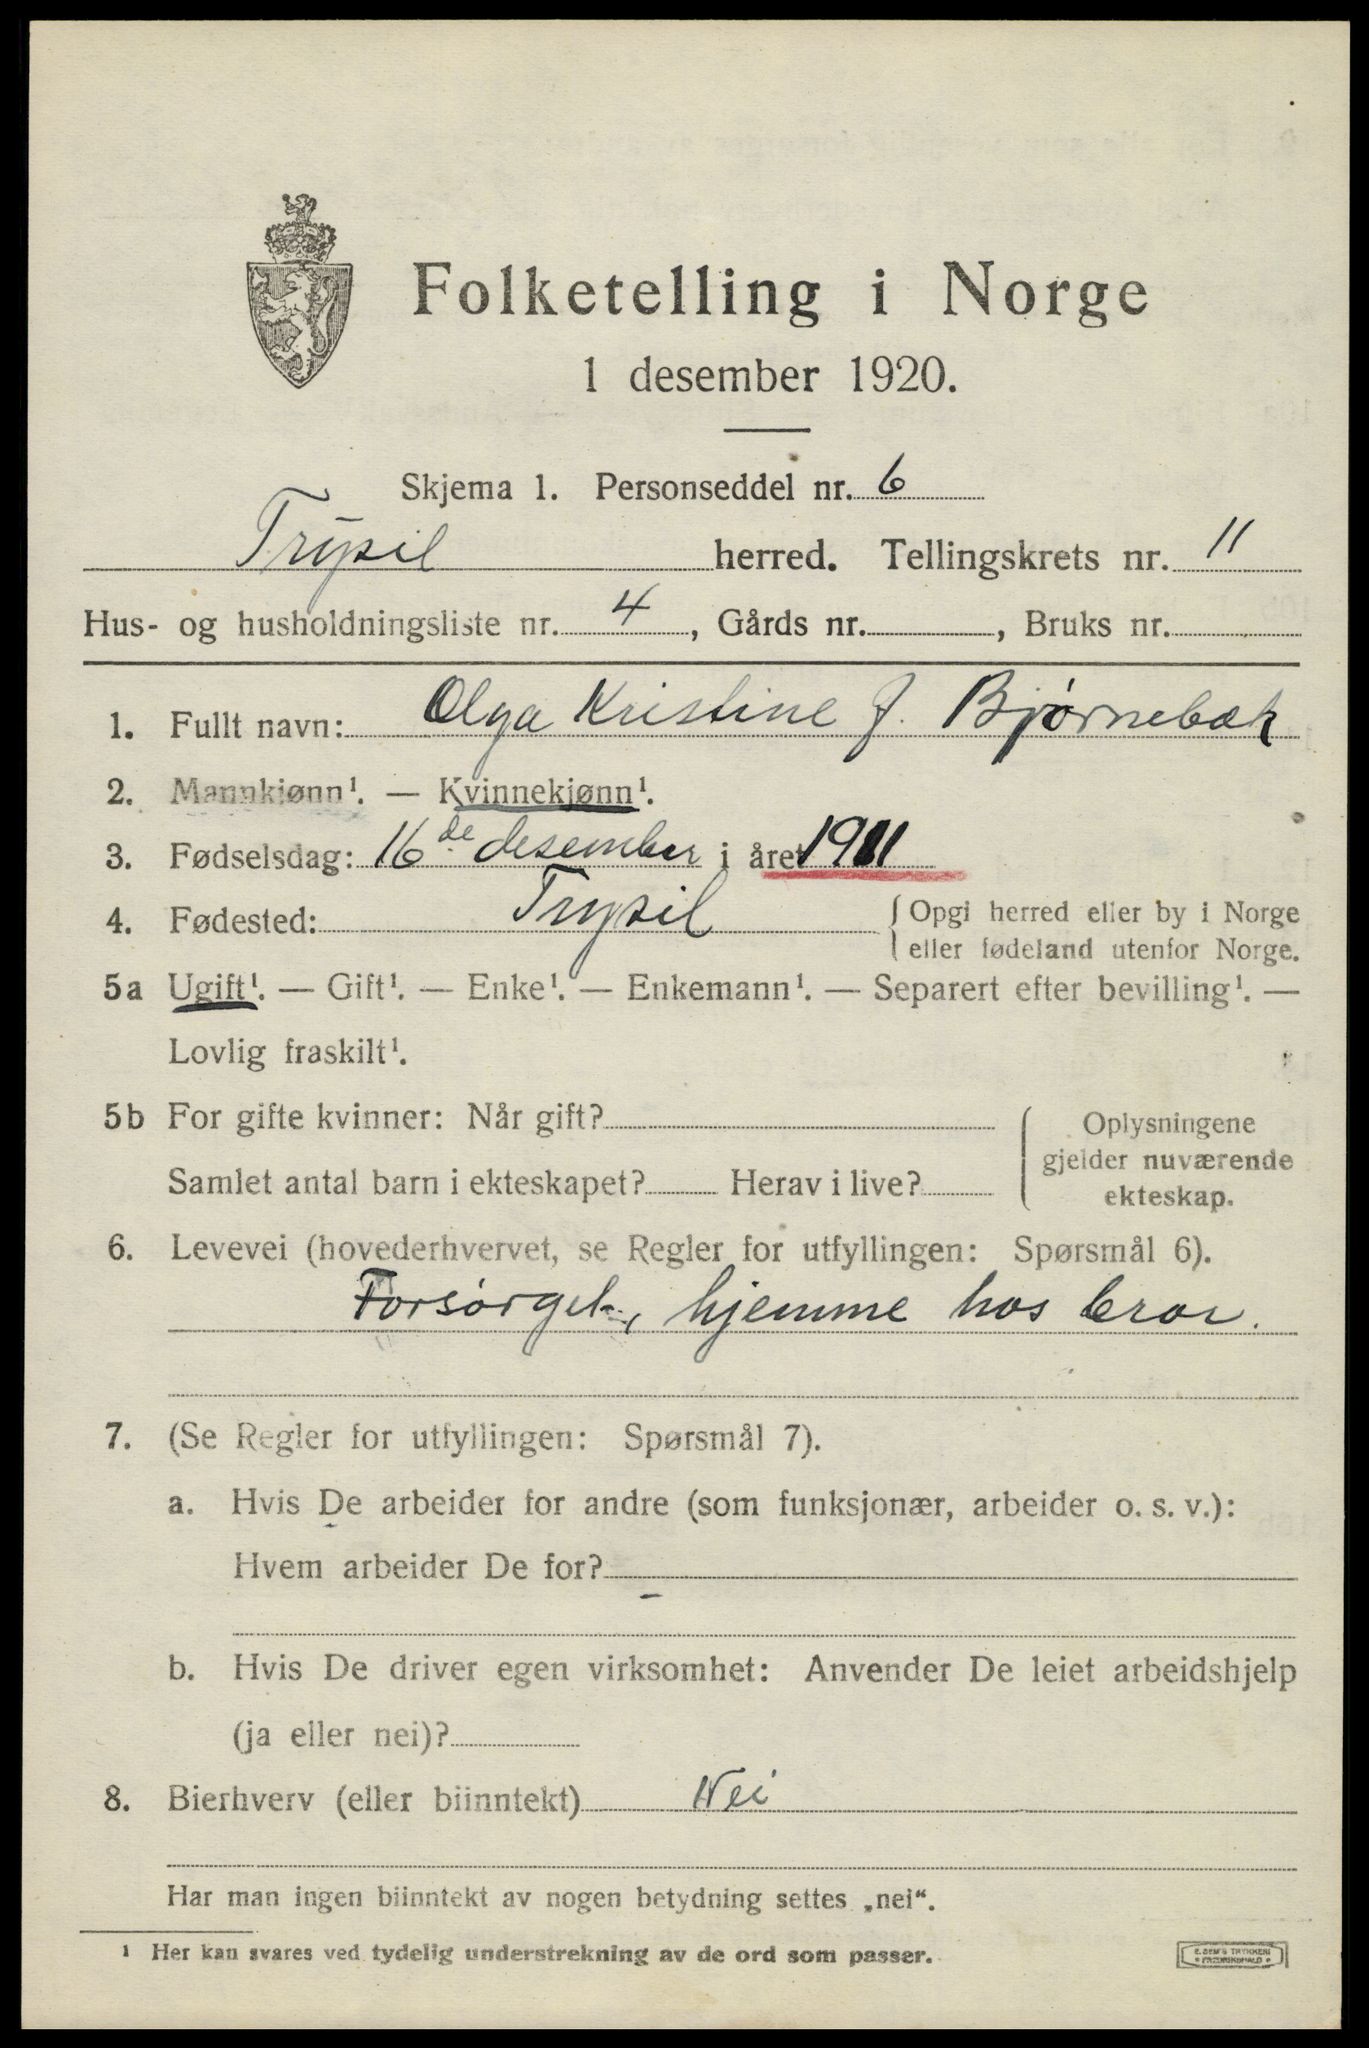 Folketelling i Norge
1 desember 1920.
Skjema 1. Personseddel nr. 6
Trysil herred. Tellingskrets nr. 11
Hus- og husholdningsliste nr. 4, Gårds nr. , Bruks nr.
1. Fullt navn: Olga Kristine J. Bjørnebæk
2. Mannkjønn¹. — Kvinnekjønn¹.
3. Fødselsdag: 16de desember i året 1911
4. Fødested: Trysil { Opgi herred eller by i Norge
eller fødeland utenfor Norge.
5a Ugift¹. — Gift¹. — Enke¹. — Enkemann¹. — Separert efter bevilling¹. —
Lovlig fraskilt¹.
5b For gifte kvinner: Når gift? { Oplysningene
gjelder nuværende
Samlet antal barn i ekteskapet? Herav i live? ekteskap.
6. Levevei (hovederhvervet, se Regler for utfyllingen: Spørsmål 6).
Forsørget, hjemme hos bror.
7. (Se Regler for utfyllingen: Spørsmål 7).
a. Hvis De arbeider for andre (som funksjonær, arbeider o. s. v.):
Hvem arbeider De for?
b. Hvis De driver egen virksomhet: Anvender De leiet arbeidshjelp
(ja eller nei)?
8. Bierhverv (eller biinntekt) Nei
Har man ingen biinntekt av nogen betydning settes „nei“.
¹ Her kan svares ved tydelig understrekning av de ord som passer.
E. SEM'S TRYKKERI
FREDRIKSHALD